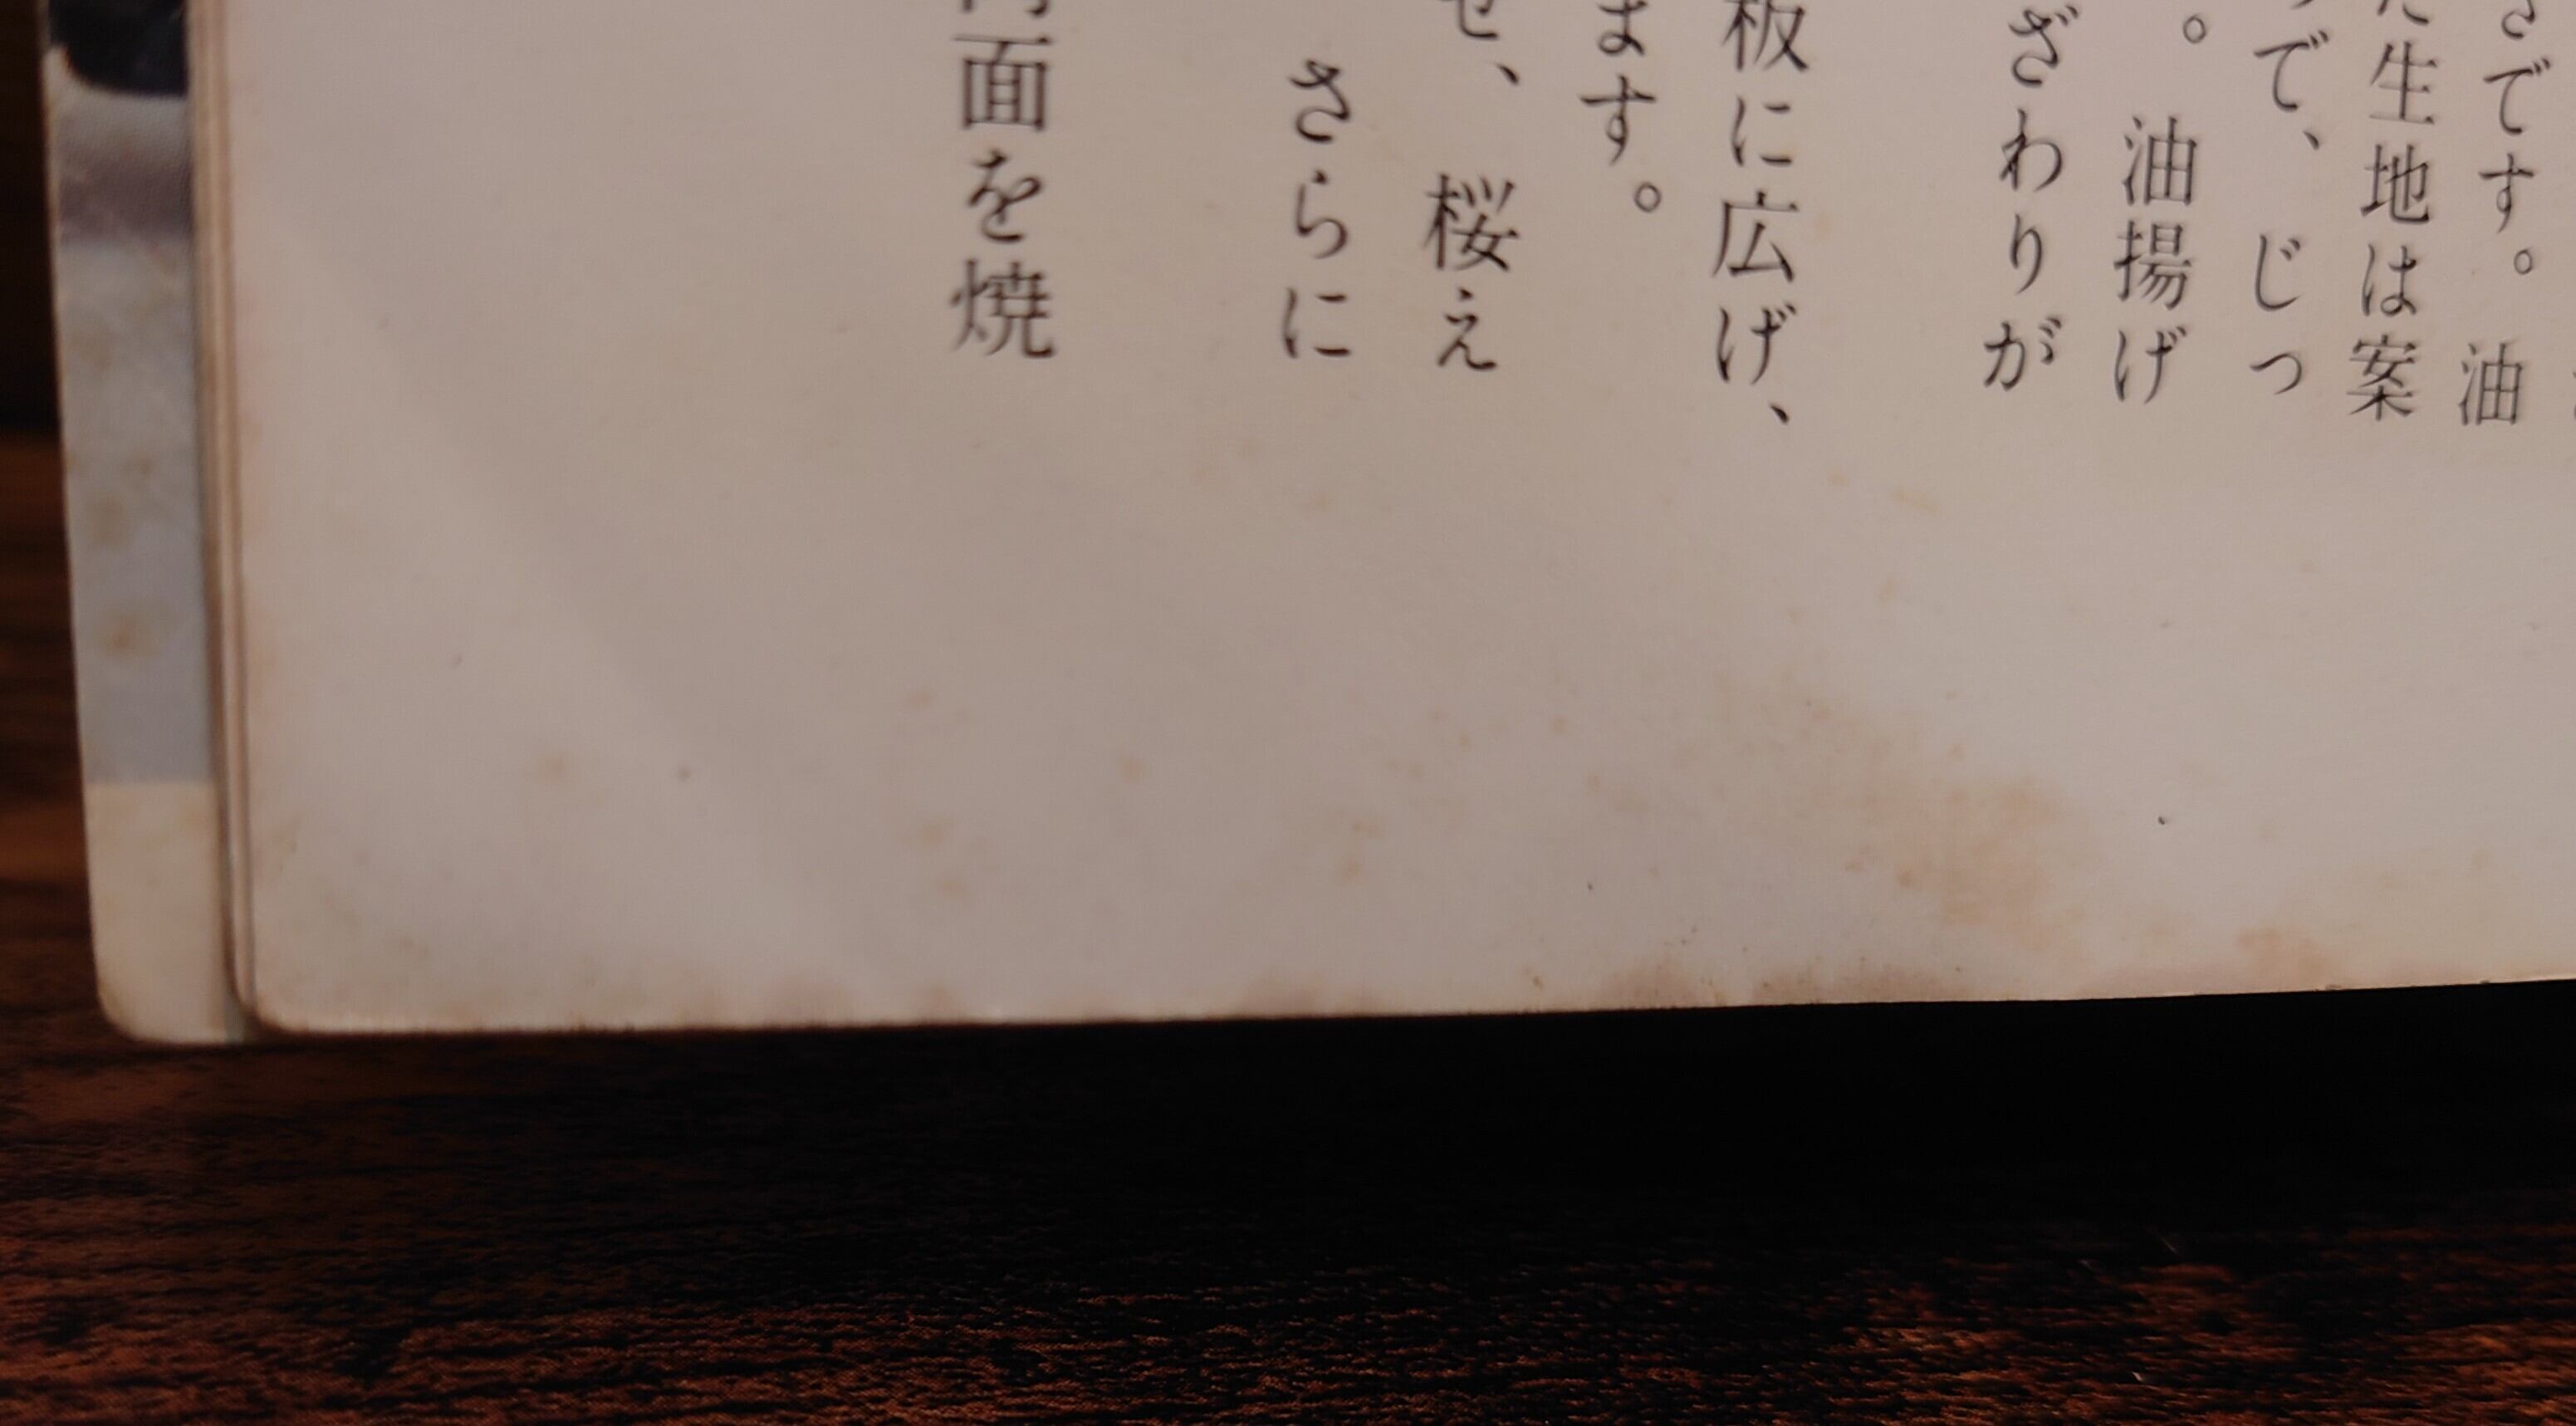 さです。油
た生地は案
で、じっ
。油揚げ
ざわりが
板に広げ、
ます。
せ、桜え
さらに
両面を焼